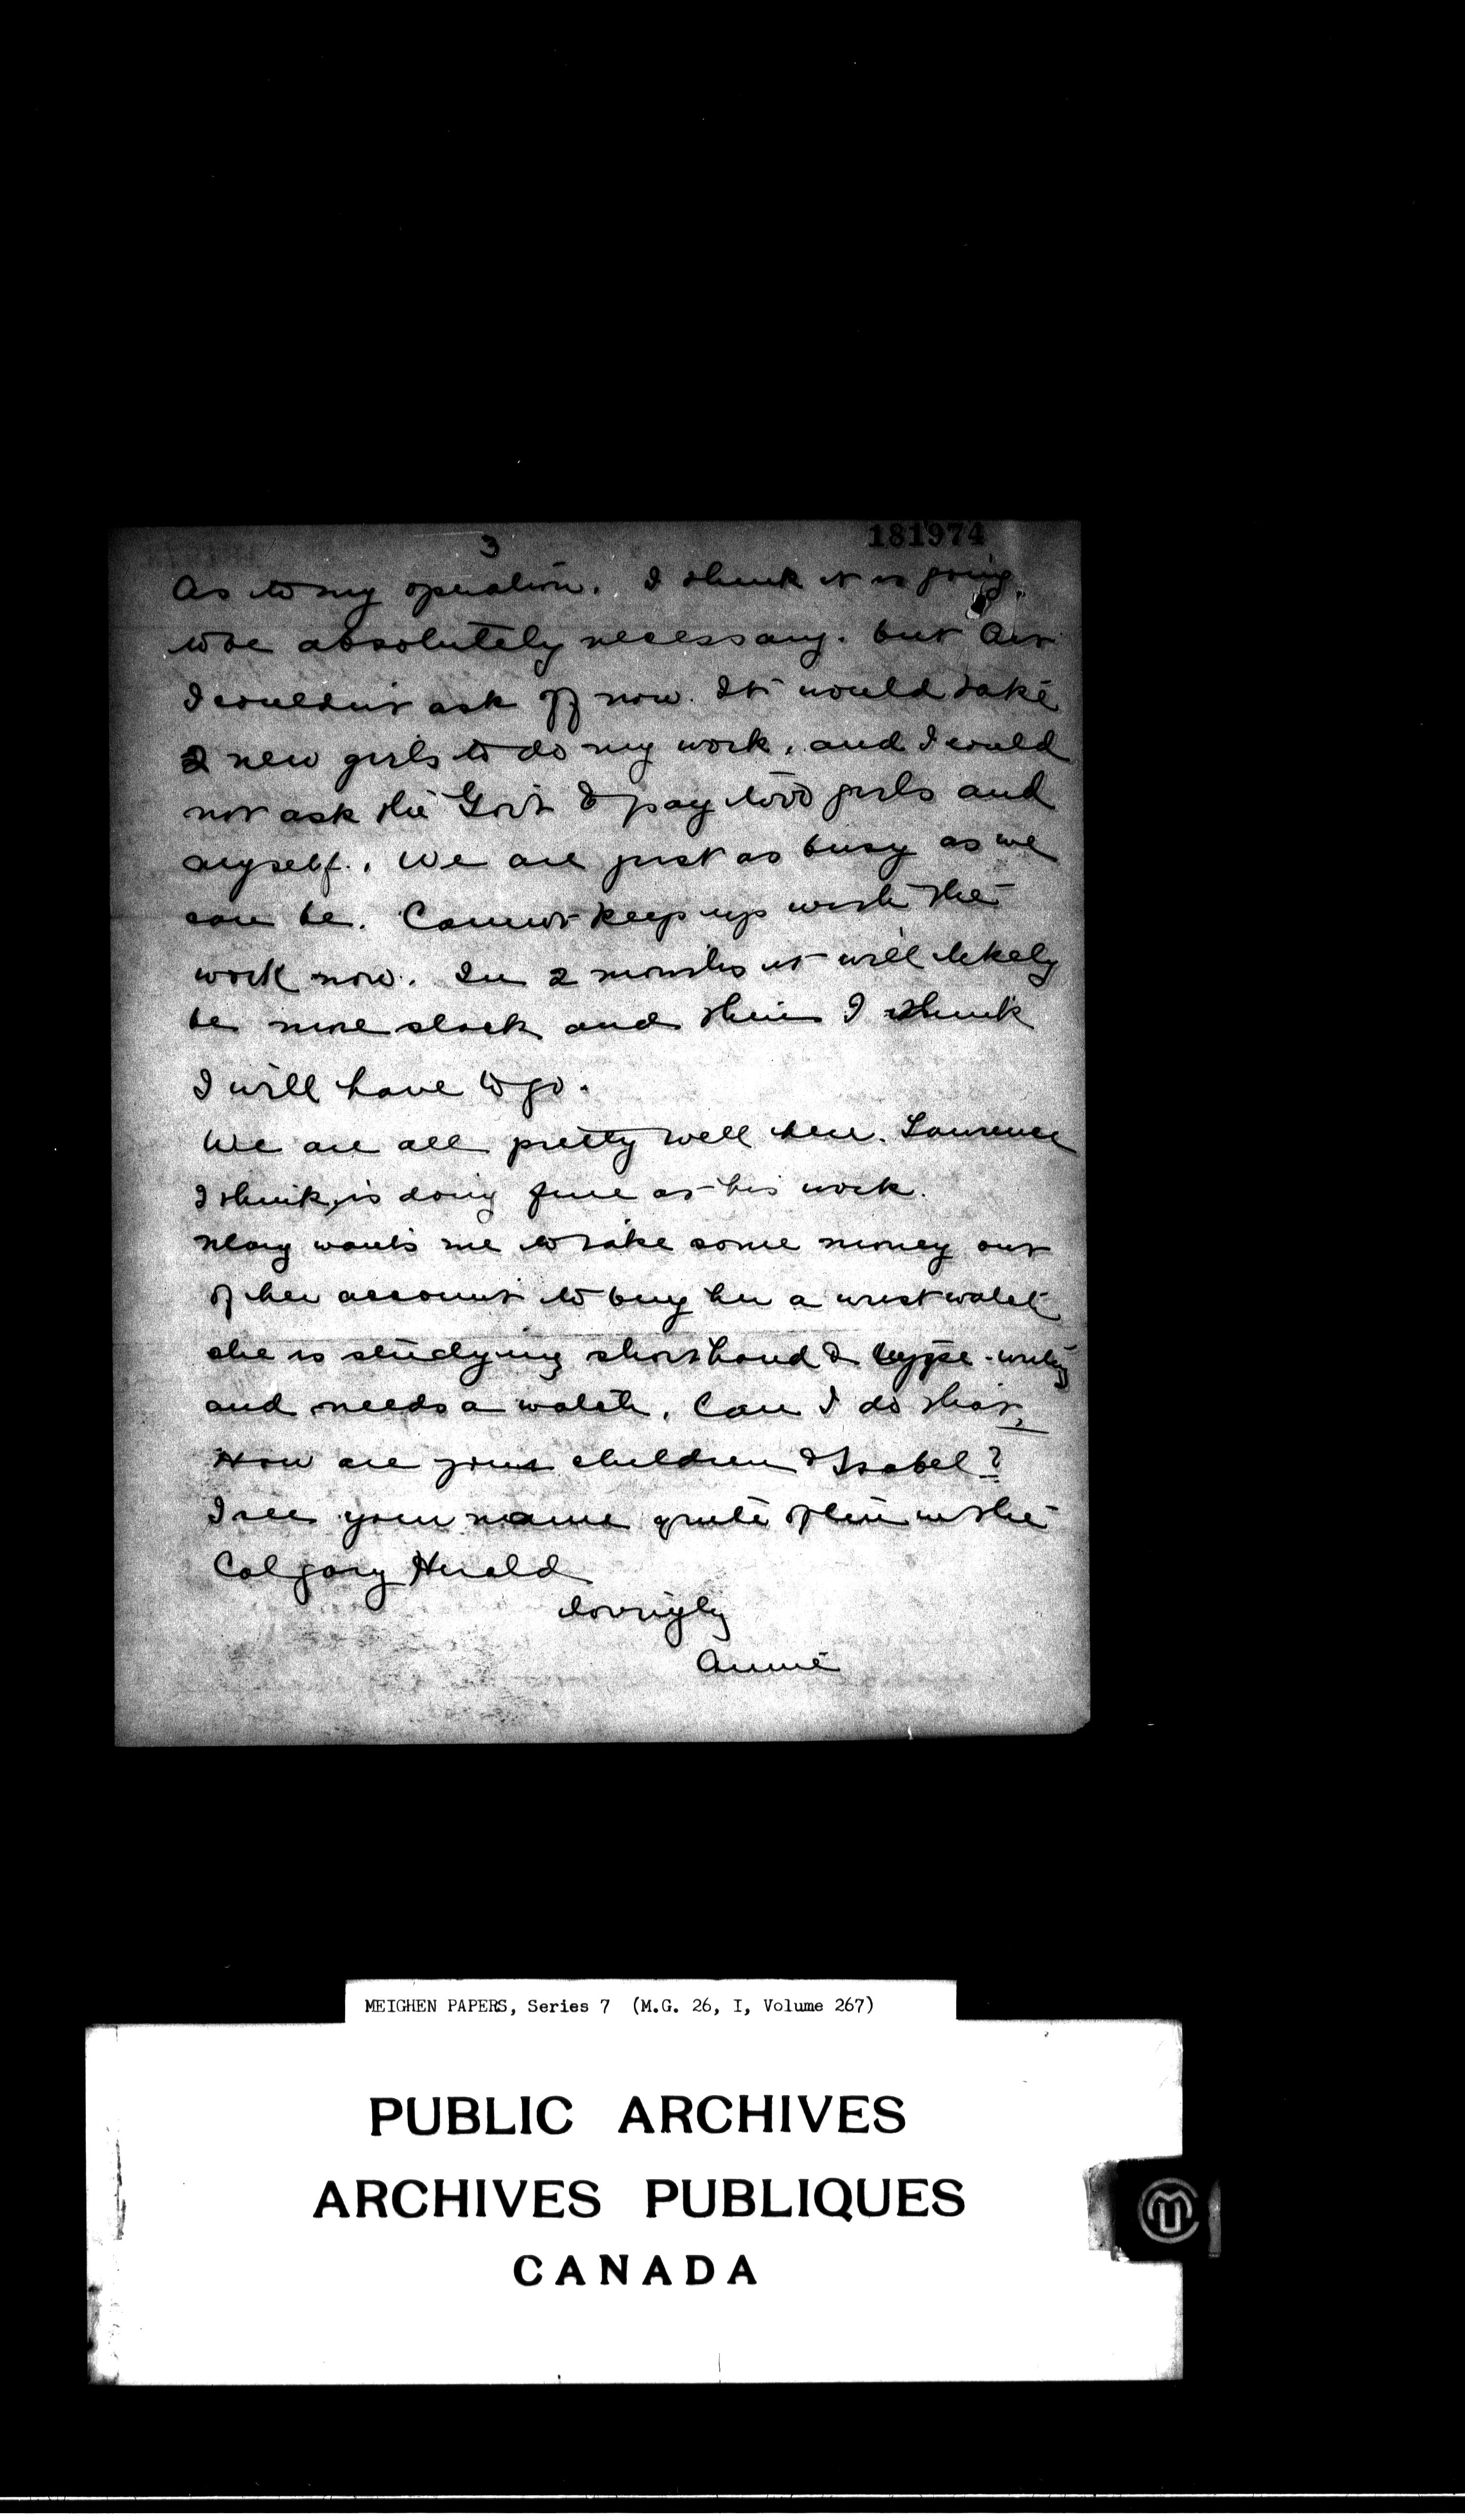 3
181974
As to my operation. I think it is going
to be absolutely necessary. but Art
I couldn't ask off now. It would take
2 new girls to do my work, and I could
not ask the Gov't to pay two girls and
myself. We are just as busy as we
can be. Cannot keep up with the
work now. In 2 months it will likely
be more slack and then I think
I will have to go.
We are all pretty well here. Laurence
I think, is doing fine at his work.
Mary wants me to take some money out
of her account to buy her a wrist watch
she is studying shorthand & type-writing
and needs a watch. Can I do that?
How are your children & Isabel?
I see your name quite often in the
Calgary Herald
Lovingly
Annie
MEIGHEN PAPERS, Series 7 (M.G. 26, I, Volume 267)
PUBLIC ARCHIVES
ARCHIVES PUBLIQUES
CANADA